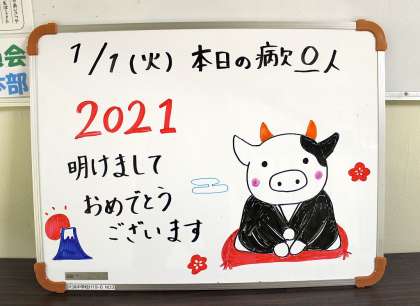 1/1(火) 本日の病欠 0人
2021
明けまして
おめでとう
ございます
会
本部